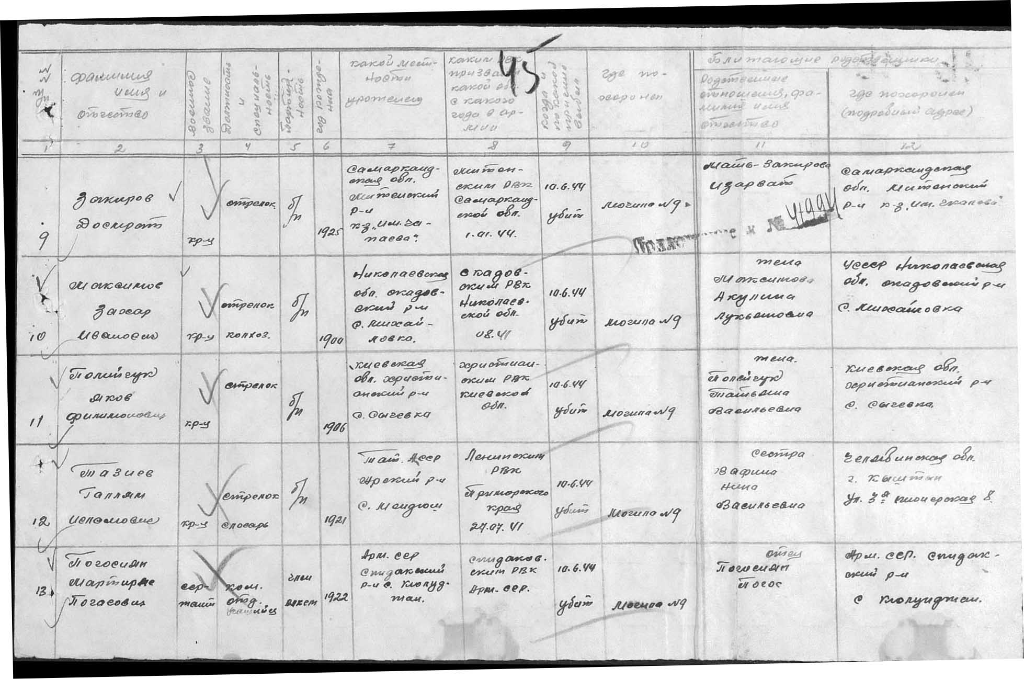 45
№№ п/п
Фамилия имя и отчество
Военное звание
Должность и специальность
Партийность
Год рождения
Какой местности уроженец
Каким РВК призван какой обл. с какого года в армии
Когда и по какой причине выбыл
Где похоронен
Ближайшие родственники
Родственные отношения, фамилия имя отчество
Где похоронен (подробный адрес)
1 2 3 4 5 6 7 8 9 10 11 12
9
Закиров
Досмрат
кр-ц
стрелок
б/п
1925
Самарканд-
ская обл.
Митенский
р-н
к-з „им. Ча-
паева".
Митен-
ским РВК
Самаркан-
ской обл.
1.01.44.
10.6.44
убит
Могила №9
Мать-Закирова
Изарват
Самаркандская
обл. Митенский
р-н к-з „им. Чапаева"
Приложение к № 41994
10
Максимов
Захар
Иванович
кр-ц
стрелок
колхоз.
б/п
1900
Николаевская
обл. скадов-
ский р-н
с. Михай-
ловка.
скадов-
ским РВК
Николаев-
ской обл.
08.41
10.6.44
убит
Могила №9
жена
Максимова
Акулина
Лукьяновна
УССР Николаевская
обл. скадовский р-н
с. Михайловка
11
Полищук
Яков
Филимонович
кр-ц
стрелок
б/п
1906
Киевская
обл. христи-
анский р-н
с. Сычевка
христиан-
ским РВК
Киевской
обл.
10.6.44
убит
Могила №9
жена.
Полещук
Татьяна
Васильевна
Киевская обл.
христианский р-н
с. Сычевка
12
Тазиев
Галлям
Исламович
кр-ц
стрелок
слесарь
б/п
1921
Тат. АССР
Арский р-н
Ленинским
РВК
Приморского
края
27.07.41
10.6.44
убит
Могила №9
сестра
Вафина
Нина
Васильевна
Челябинская обл.
г. Кыштым
ул. 3я пионерская 8
13
Погосиян
Мартирос
Погасович
сер-
жант
ком.
отд.
член
влксм
1922
Арм. ССР
Спидакский
р-н с. Клюлуд-
жан.
Спидаков.
ским РВК
Арм. ССР.
10.6.44
убит
Могила №9
отец
Погосиян
Погос
Арм. ССР. Спидак-
ский р-н
с Клюлуиджан.